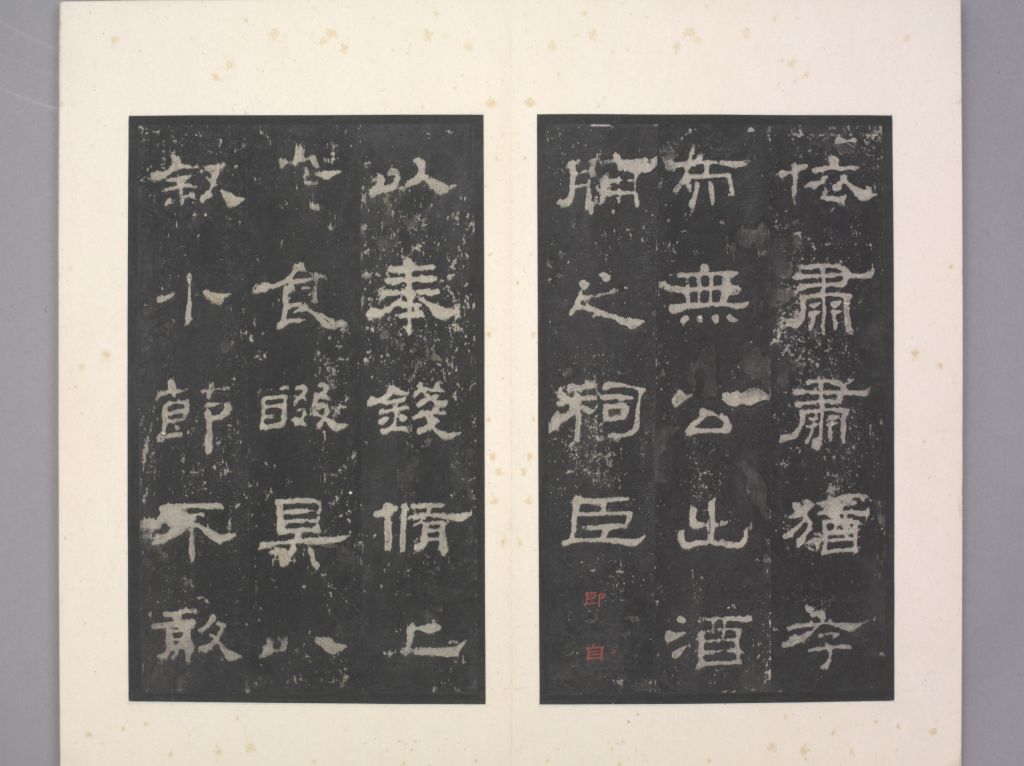 依肅肅猶存
而無公出酒
脯之祠臣即自
以奉錢脩上
案食醊具以
叙小節不敢